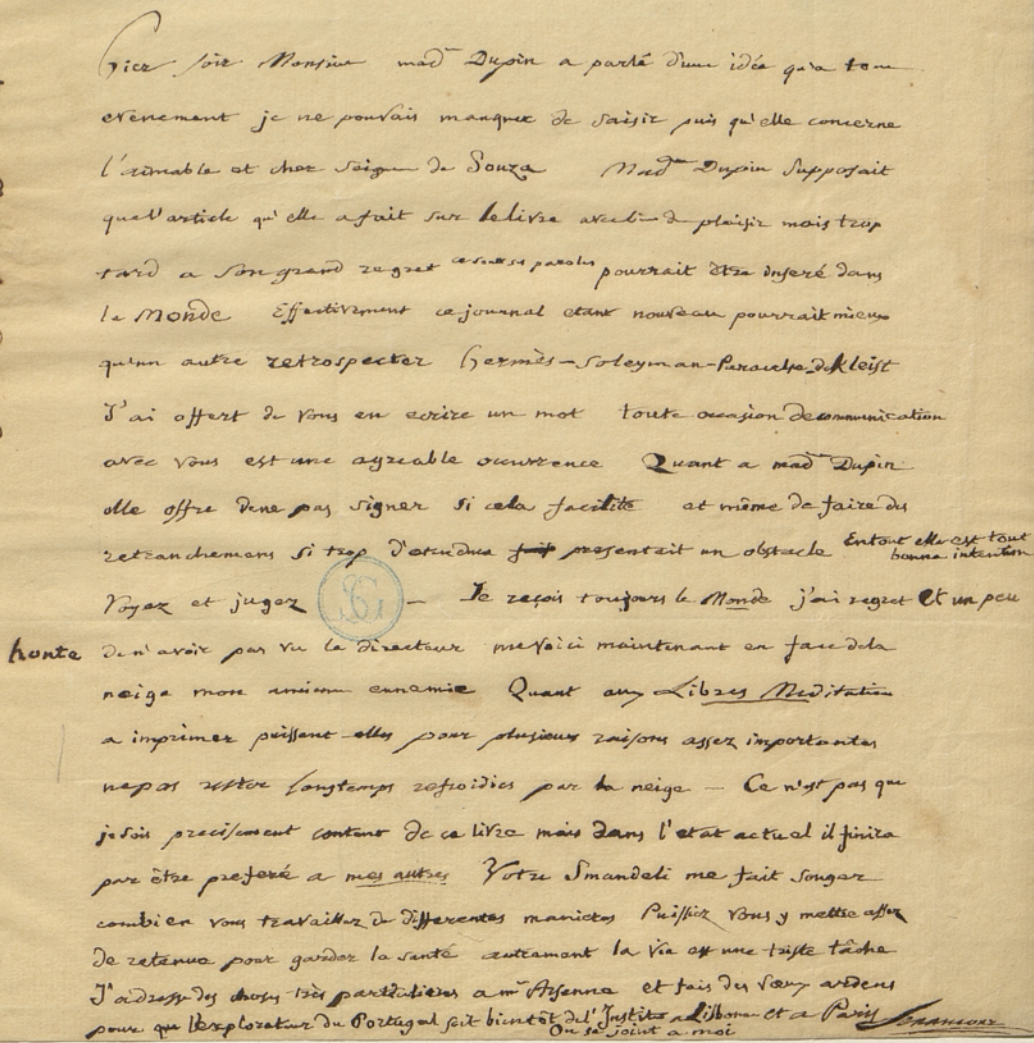 hier soir Monsieur mad^me Dupin a parlé d'une idée qu'a tout
evenement je ne pouvais manquer de saisir puis qu'elle concerne
l'aimable et cher de Souza Mad^me Dupin supposait
quel'article qu'elle a fait sur le livre avec de plaisir mais trop
tard a son grand regret ce sont ses paroles pourrait être inseré dans
le Monde Effectivement ce journal etant nouveau pourrait mieux
qu'un autre retrospecter hermès - Soleyman - de Kleist
J'ai offert de vous en ecrire un mot toute occasion de communication
avec vous est une agreable ocurrence Quant a mad^me Dupin
elle offre de ne pas signer si cela facilite et même de faire des
retranchemens si trop d'etendue fait presentait un obstacle En tout elle est tout
bonne intention
Voyez et jugez — Je reçois toujours le Monde j'ai regret et un peu
honte de n'avoir pas vu le directeur me voici maintenant en face de la
neige mon ancienne ennemie Quant aux Libres Meditations
a imprimer puissent-elles pour plusieurs raisons assez importantes
ne pas rester longtemps refroidies par la neige — Ce n'est pas que
je sois precisement content de ce livre mais dans l'etat actuel il finira
par être preferé a mes autres Votre Smandeli me fait songer
combien vous travaillez de differentes manieres Puissiez vous y mettre assez
de retenue pour garder la santé autrement la vie est une triste tâche
J'adresse des choses très particulieres a m^r Arsenne et fais des vœux ardens
pour que l'explorateur du Portugal soit bientôt de l'Institut a Lisbonne et a Paris Senancour
On se joint a moi